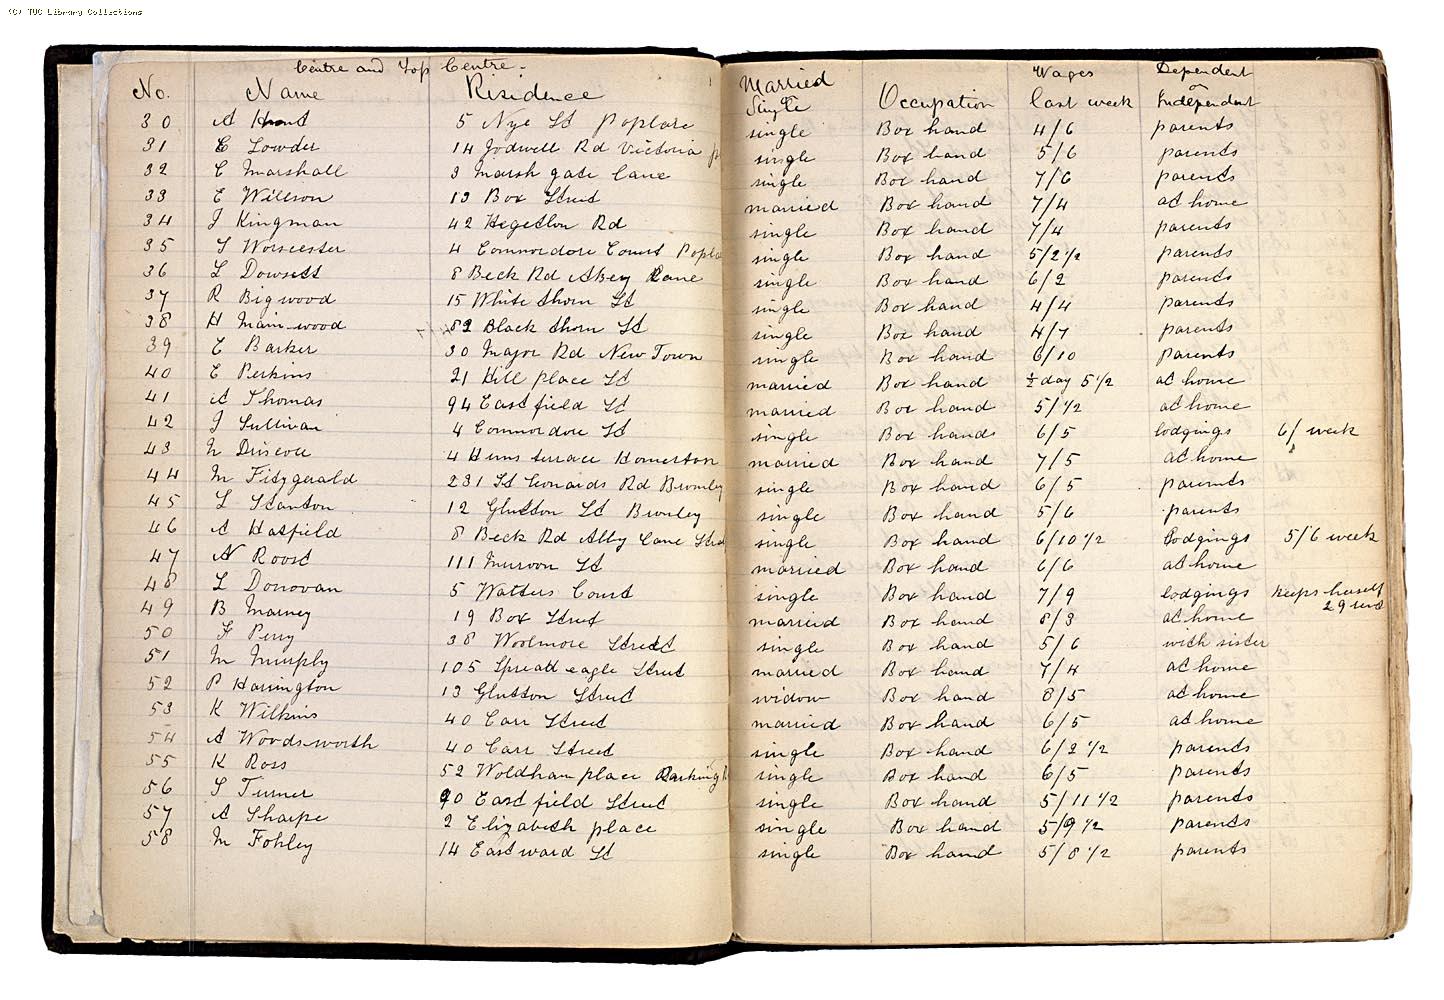 (C) TUC Library Collections
Centre and Top Centre -
No. Name Risidence Married Single Occupation Wages last week Dependent or Independent
30 A Hunt 5 Nye St Poplare single Box hand 4/6 parents
31 E Lowder 14 Jodwell Rd Victoria single Box hand 5/6 parents
32 E Marshall 3 Marsh gate lane single Box hand 7/6 parents
33 E Willson 13 Box Street married Box hand 7/4 at home
34 J Kingman 42 Hegetlon Rd single Box hand 7/4 parents
35 S Worsester 4 Commordore Court Popla single Box hand 5/2 1/2 parents
36 L Dowsett 8 Beck Rd Abey Lane single Box hand 6/2 parents
37 R Bigwood 15 White thorn St single Box hand 4/4 parents
38 H Main-wood 82 Black thorn St single Box hand 4/7 parents
39 E Barker 30 Major Rd New Town single Box hand 6/10 parents
40 E Perkins 21 Hill place St married Box hand 1/2 day 5 1/2 at home
41 A Thomas 94 East field St married Box hand 5/1/2 at home
42 J Sullivan 4 Commordore St single Box hands 6/5 lodgings 6/ week
43 N Driscoll 4 Hums terrace Homerton married Box hand 7/5 at home
44 M Fitzgerald 231 St Leonards Rd Bromley single Box hand 6/5 parents
45 L Stanton 12 Glutton St Bromley single Box hand 5/6 parents
46 A Hatfield 8 Beck Rd Abby Lane single Box hand 6/10 1/2 lodgings 5/6 week
47 N Roost 111 Furroon St married Box hand 6/6 at home
48 L Donovan 5 Watters Court single Box hand 7/9 lodgings keeps herself
49 B Marney 19 Box Street married Box hand 8/3 at home 29 rent
50 F Perry 38 Woolmore Street single Box hand 5/6 with sister
51 M Murphy 105 Spreatt eagle Street married Box hand 7/4 at home
52 P Harrington 13 Glutton Street widow Box hand 8/5 at home
53 K Wilkins 40 Carr Street married Box hand 6/5 at home
54 A Woodsworth 40 Carr Street single Box hand 6/2 1/2 parents
55 K Ross 52 Woldham place Barking single Box hand 6/5 parents
56 S Turner 90 East field Street single Box hand 5/11 1/2 parents
57 A Sharpe 2 Elizabeth place single Box hand 5/9 1/2 parents
58 M Fohley 14 Eastward St single Box hand 5/8 1/2 parents